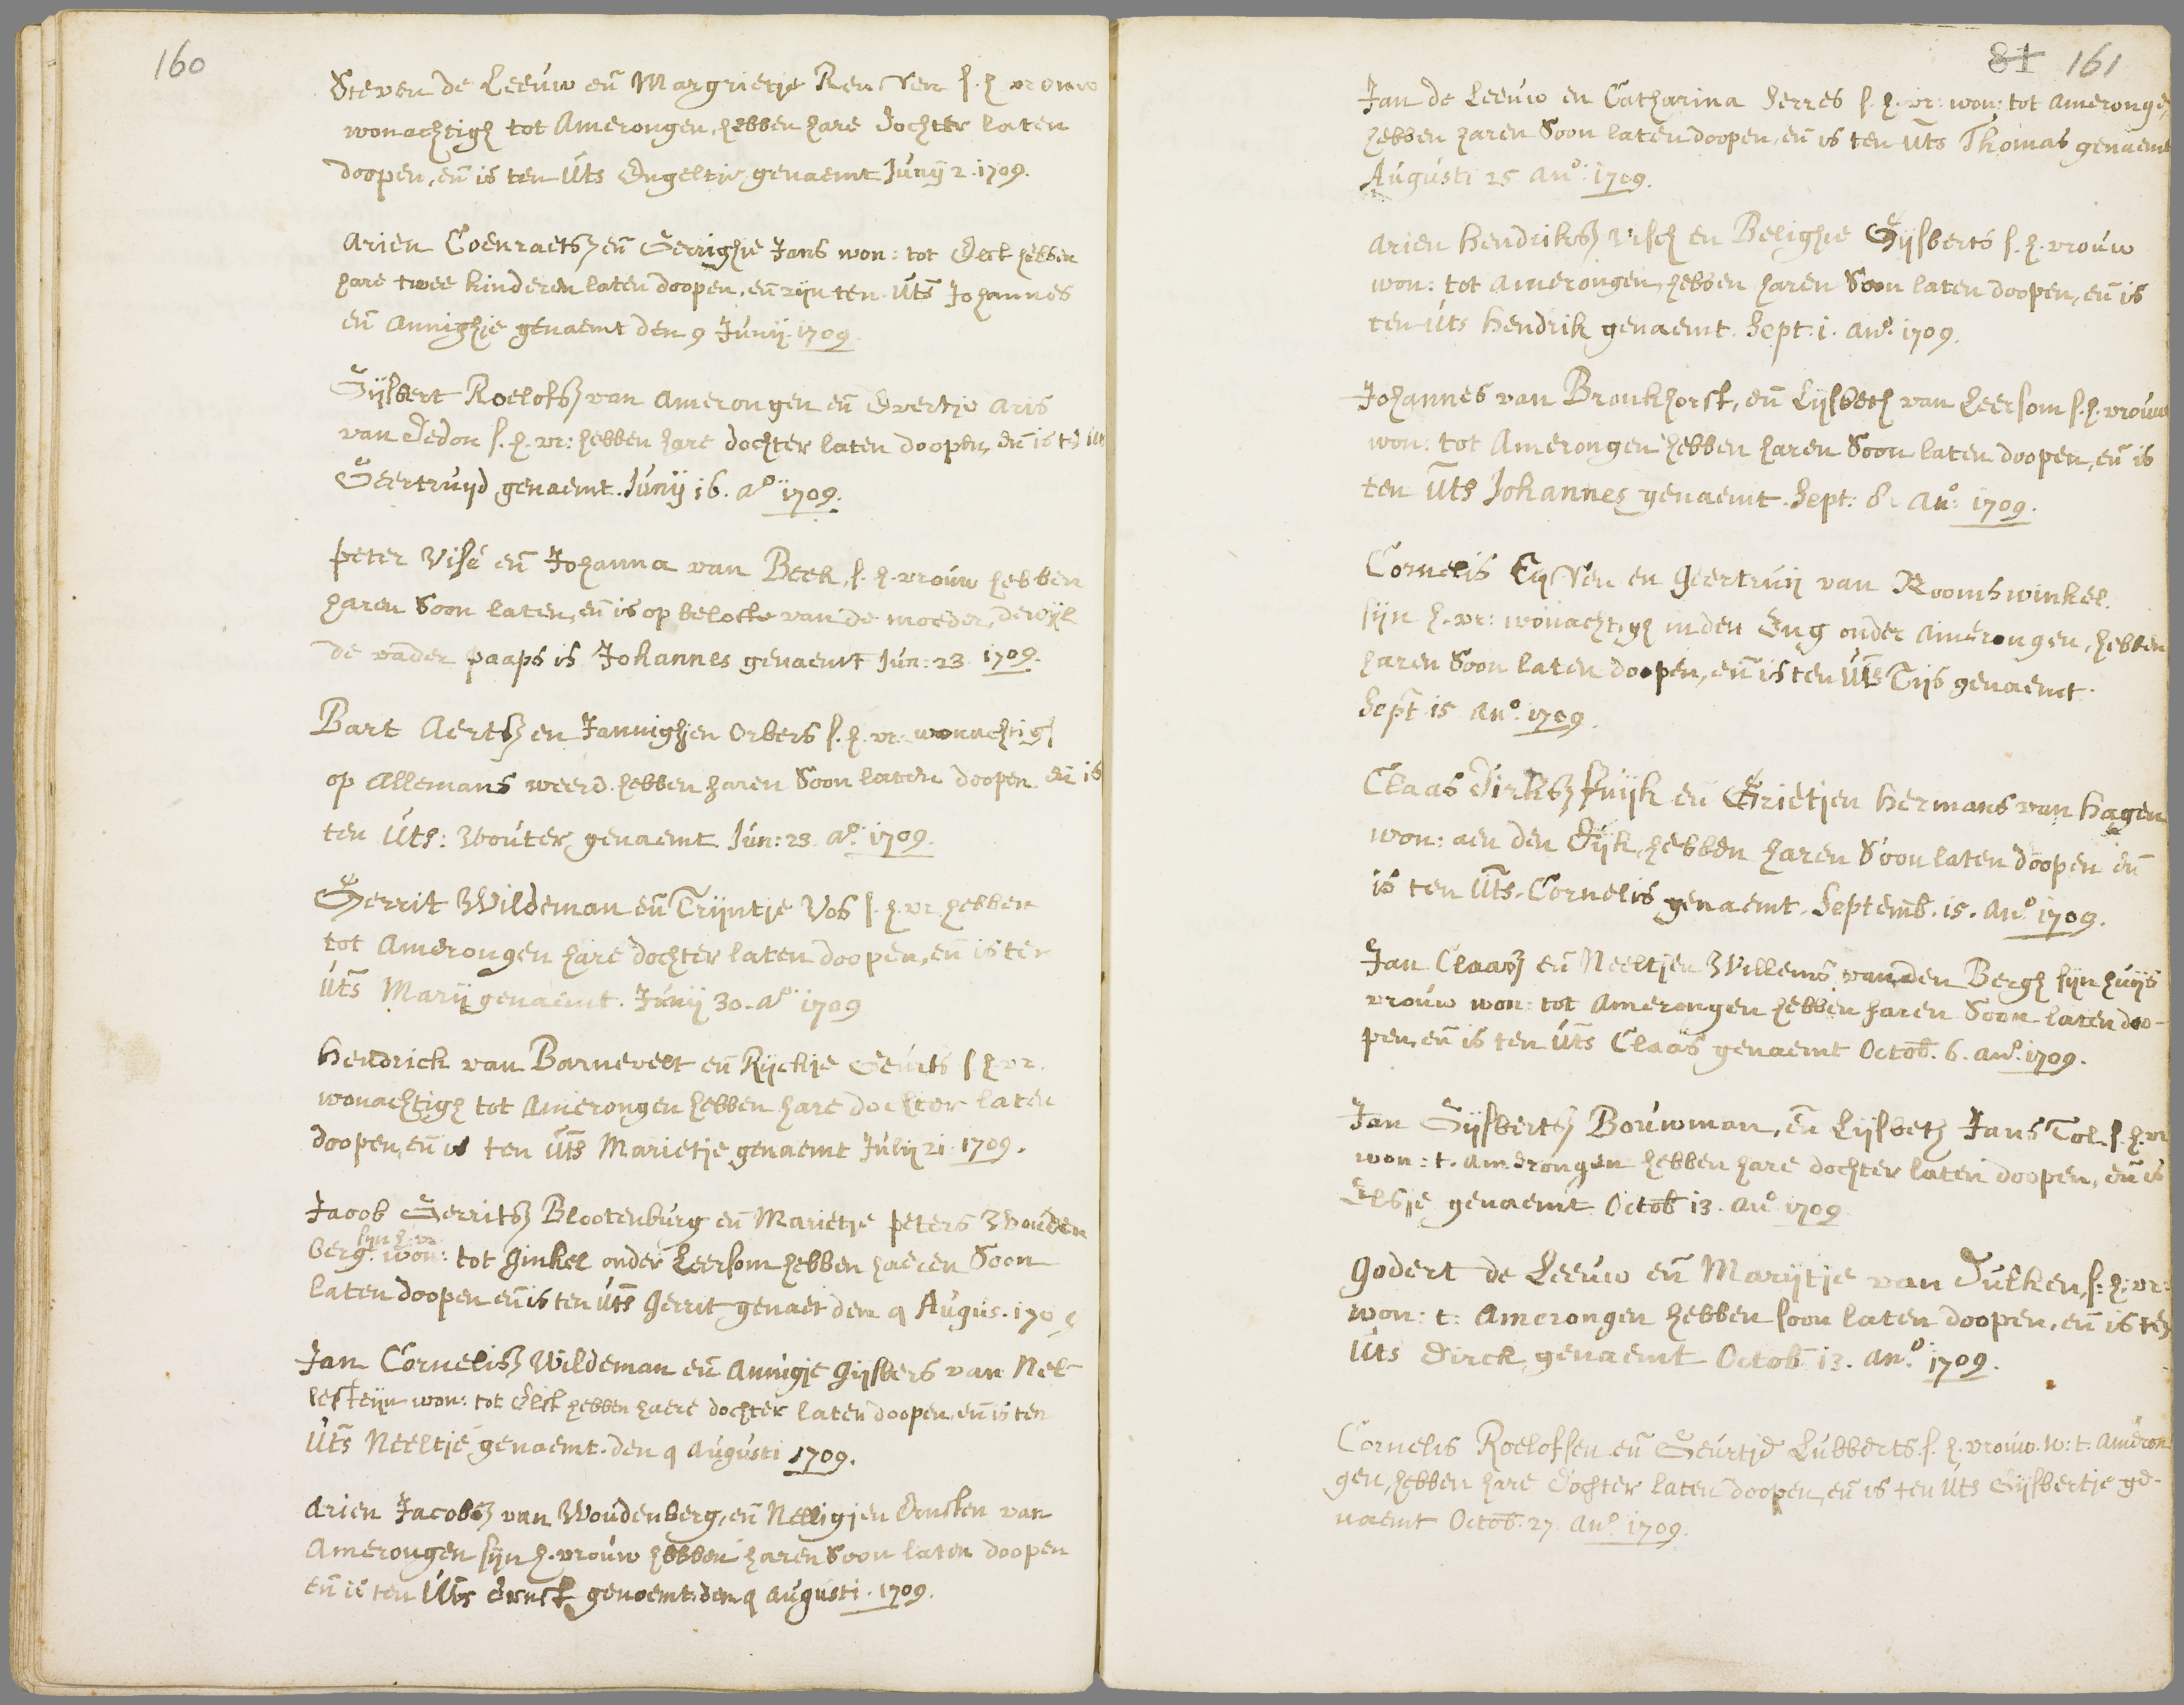 160
Steven de Leeuw en Margrietje s. h. vrouw
wonachtigh tot Amerongen, hebben hare dochter laten
doopen, en is ten uts Engeltie genaemt Junij 2. 1709.
Arien Coenraetsz en Gerrighie Jans won: tot hebben
hare twee kinderen laten doopen, en zijn ten uts Johannes
en Annighie genaemt den 9 Junij 1709
Gijsbert Roelofsz van Amerongen en Evertje Aris
van Dedon s. h. vr: hebben hare dochter laten doopen, en is
Geertruijd genaemt. Junij 16. Ao 1709.
Peter Visé en Johanna van Beek, s. h. vrouw hebben
haren Soon laten, en is op belofte van de moeder, dewijl
de vader paaps is Johannes genaemt Jun: 23 1709.
Bart Aertsz en Jannighjen Orbers s. h. vr. wonachtigh
op Allemans weerd. hebben haren Soon laten doopen en is
ten Uts: Wouter genaemt Jun: 23. Ao. 1709.
Gerrit Wildeman en Trijntje Vos s. h. vr. hebben
tot Amerongen hare dochter laten doopen, en is ter
Uts Marij genaemt. Junij 30. Ao 1709
Hendrick van Barnevelt en Rijckje Geurts s h vr.
wonachtigh tot Amerongen hebben hare dochter laten
doopen, en is ten Uts Marietje genaemt Julij 21. 1709.
Jacob Gerritsz Blootenburg en Marietje Peters Wouden
berg. sijn h. vr. won: tot Ginkel onder Leersom hebben haeren Soon
laten doopen en is ten uts Gerrit genaet den 9 Augus. 1709
Jan Cornelisz Wildeman en Annigje Gijsbers van Nel-
lesteijn won: tot Elst hebben haere dochter laten doopen, en is ten
Uts Neeltje genaemt. den 9 Augusti 1709.
Arien Jacobsz van Woudenberg, en Nelligjen Ernsten van
Amerongen sijn h. vrouw hebben haren Soon laten doopen
en is ten Uts Ernst genoemt den 9 Augusti. 1709.
81 161
Jan de Leeuw en Catharina Serres s. h. vr: won: tot Amerongen,
hebben haren Soon laten doopen, en is ten uts Thomas genaemt
Augusti 25 Ano. 1709.
Arien Hendriksz Visch en Belighie Gijsberts s. h. vrouw
won: tot Amerongen, hebben haren Soon laten doopen, en is
ten uts Hendrik genaemt. Sept: 1. Ano. 1709.
Johannes van Bronkhorst, en Lijsbeth van Leersom s. h. vrouw
won: tot Amerongen hebben haren Soon laten doopen, en is
ten Uts Johannes genaemt. Sept: 8. Ano: 1709.
Cornelis en Geertruij van Roomswinkel.
sijn h. vr: wonachtigh in den Eng onder Amerongen, hebben
haren Soon laten doopen, en is ten Uts Tijs genaemt.
Sept 15 Ano. 1709.
Claas Dirksz en Grietjen Hermans van Hagen
won: aen den Dijk, hebben haren Soon laten doopen en
is ten Uts. Cornelis genaemt. Septemb. 15. Ano 1709.
Jan Claasz en Neeltjen Willems van den Bergh sijn huijs
vrouw won: tot Amerongen hebben haren Soon laten doo-
pen, en is ten Uts Claas genaemt Octob. 6. Ano. 1709.
Jan Gijsbertsz Bouwman, en Lijsbeth Jans Tol s. h. vr
won: t. Amerongen hebben hare dochter laten doopen, en is
Elsje genaemt Octob 13. Ano 1709
Godert de Leeuw en Marijtje van Dulken, s. h. vr:
won: t: Amerongen hebben soon laten doopen, en is ten
Uts Dirck genaemt Octob 13. Ano. 1709.
Cornelis Roelofsen en Geurtje Lubberts s. h. vrouw. w: t. Ameron
gen, hebben hare Dochter laten doopen, en is ten Uts Gijsbertje ge-
naemt Octob. 27. Ano. 1709.